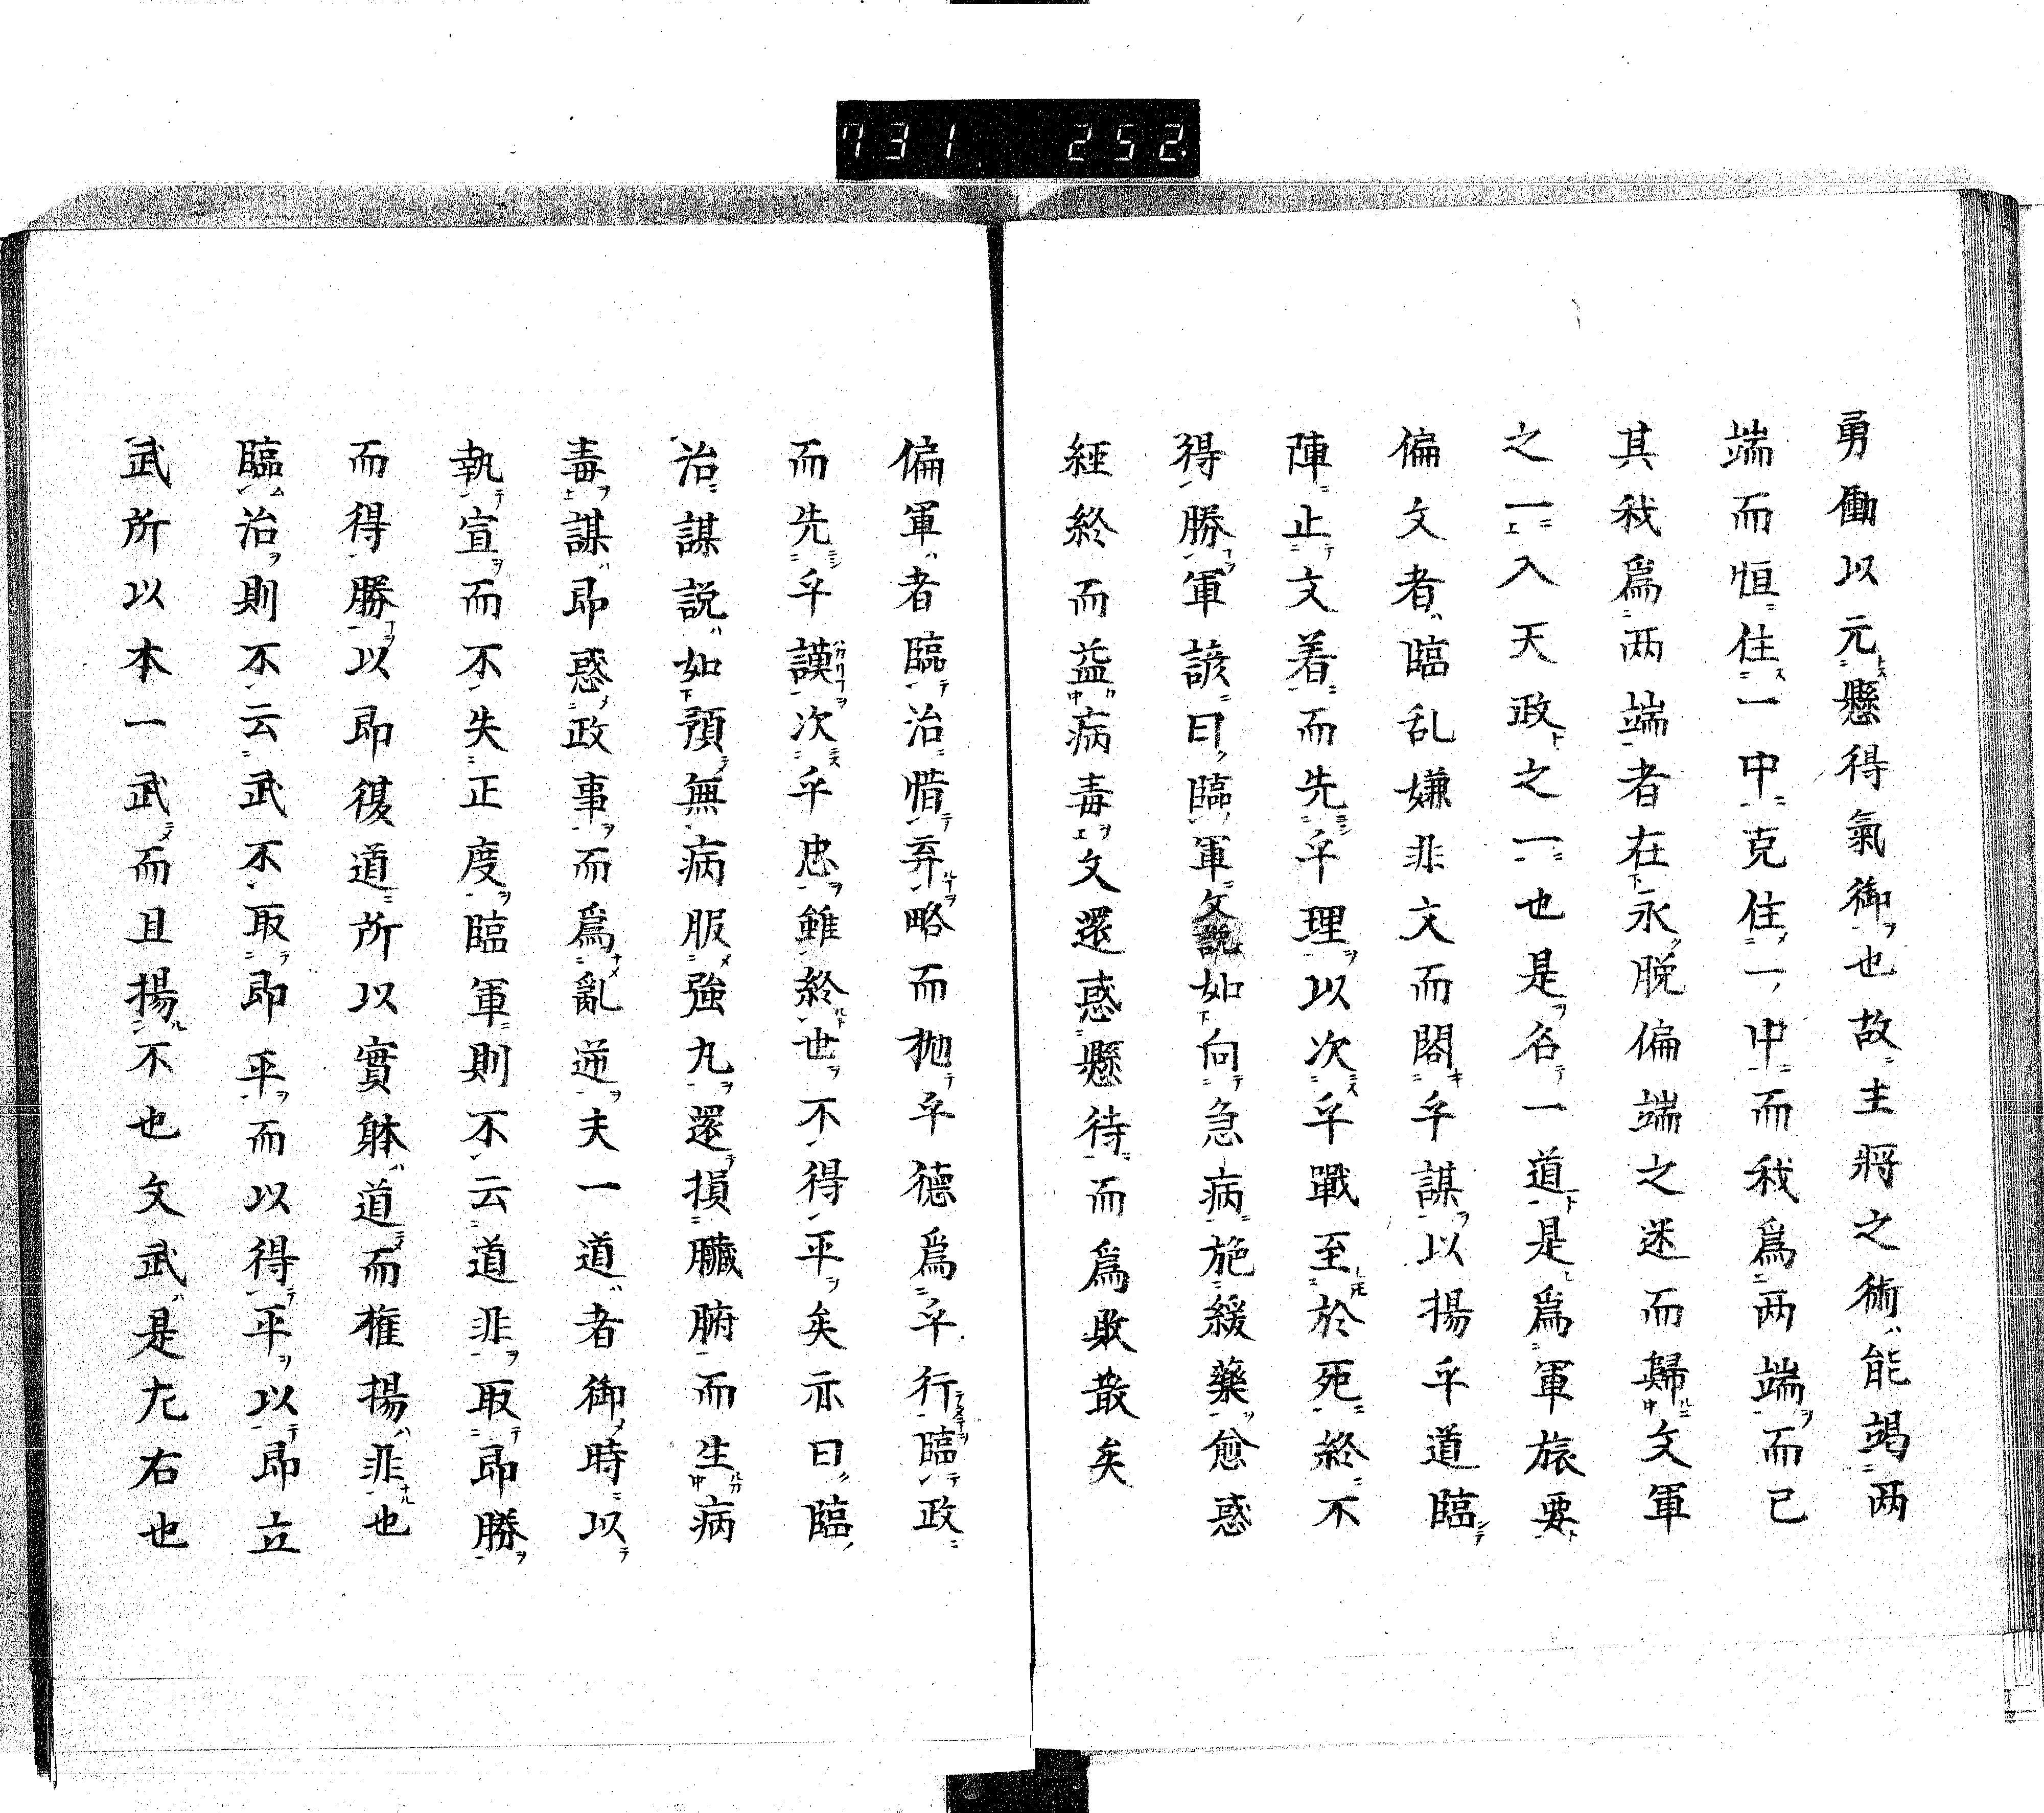 731 252
勇働以元懸得氣御也故主將之術能竭两
端而恒住一中克住一中而我爲两端而已
其我爲两端者在永脱偏端之迷而歸文軍
之一入天政之一也是名一道是爲軍旅要
偏文者臨乱嫌非文而閣乎謀以揚乎道臨
陣止文着而先乎理以次乎戰至於死終不
得勝軍諺曰臨軍文説如向急病施緩藥愈惑
經終而益病毒文還惑懸待而爲敗散矣
偏軍者臨治惜弃略而抛乎德爲乎行臨政
而先乎謨次乎忠雖終世不得平矣示曰臨
治謀説如預無病服強九還損臟腑而生病
毒謀即惑政事而爲亂逆夫一道者御時以
執宣而不失正度臨軍則不云道非取即勝
而得勝以即復道所以實躰道而権揚非也
臨治則不云武不取即平而以得平以即立
武所以本一武而且揚不也文武是尢右也